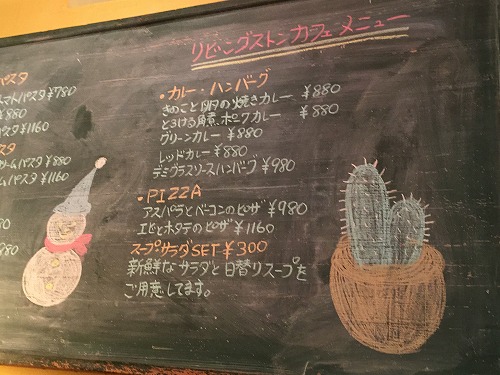 リビングストンカフェメニュー
パスタ
トマトパスタ ¥780
¥880
パスタ ¥1160
スタ
クリームパスタ ¥880
ームパスタ ¥1160
980
・カレー・ハンバーグ
きのこと の焼きカレー ¥880
とろける角煮、ポークカレー ¥880
グリーンカレー ¥880
レッドカレー ¥880
デミグラスソースハンバーグ ¥980
・PIZZA
アスパラとベーコンのピザ ¥980
エビとホタテのピザ ¥1160
スープサラダSET ¥300
新鮮なサラダと日替りスープを
ご用意してます。